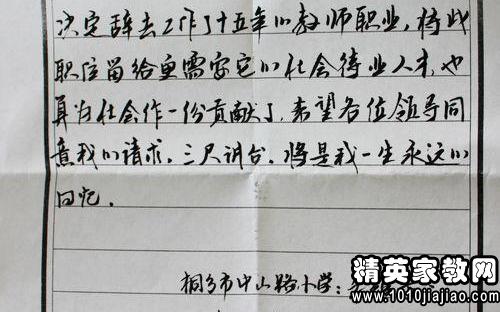 决定辞去工作了十五年的教师职业，将此
职位留给更需要它的社会待业人才，也
算为社会作一份贡献了，希望各位领导同
意我的请求。三尺讲台，将是我一生永远的
回忆。
桐乡市中山路小学：
精英家教网
www.1010jiajiao.com